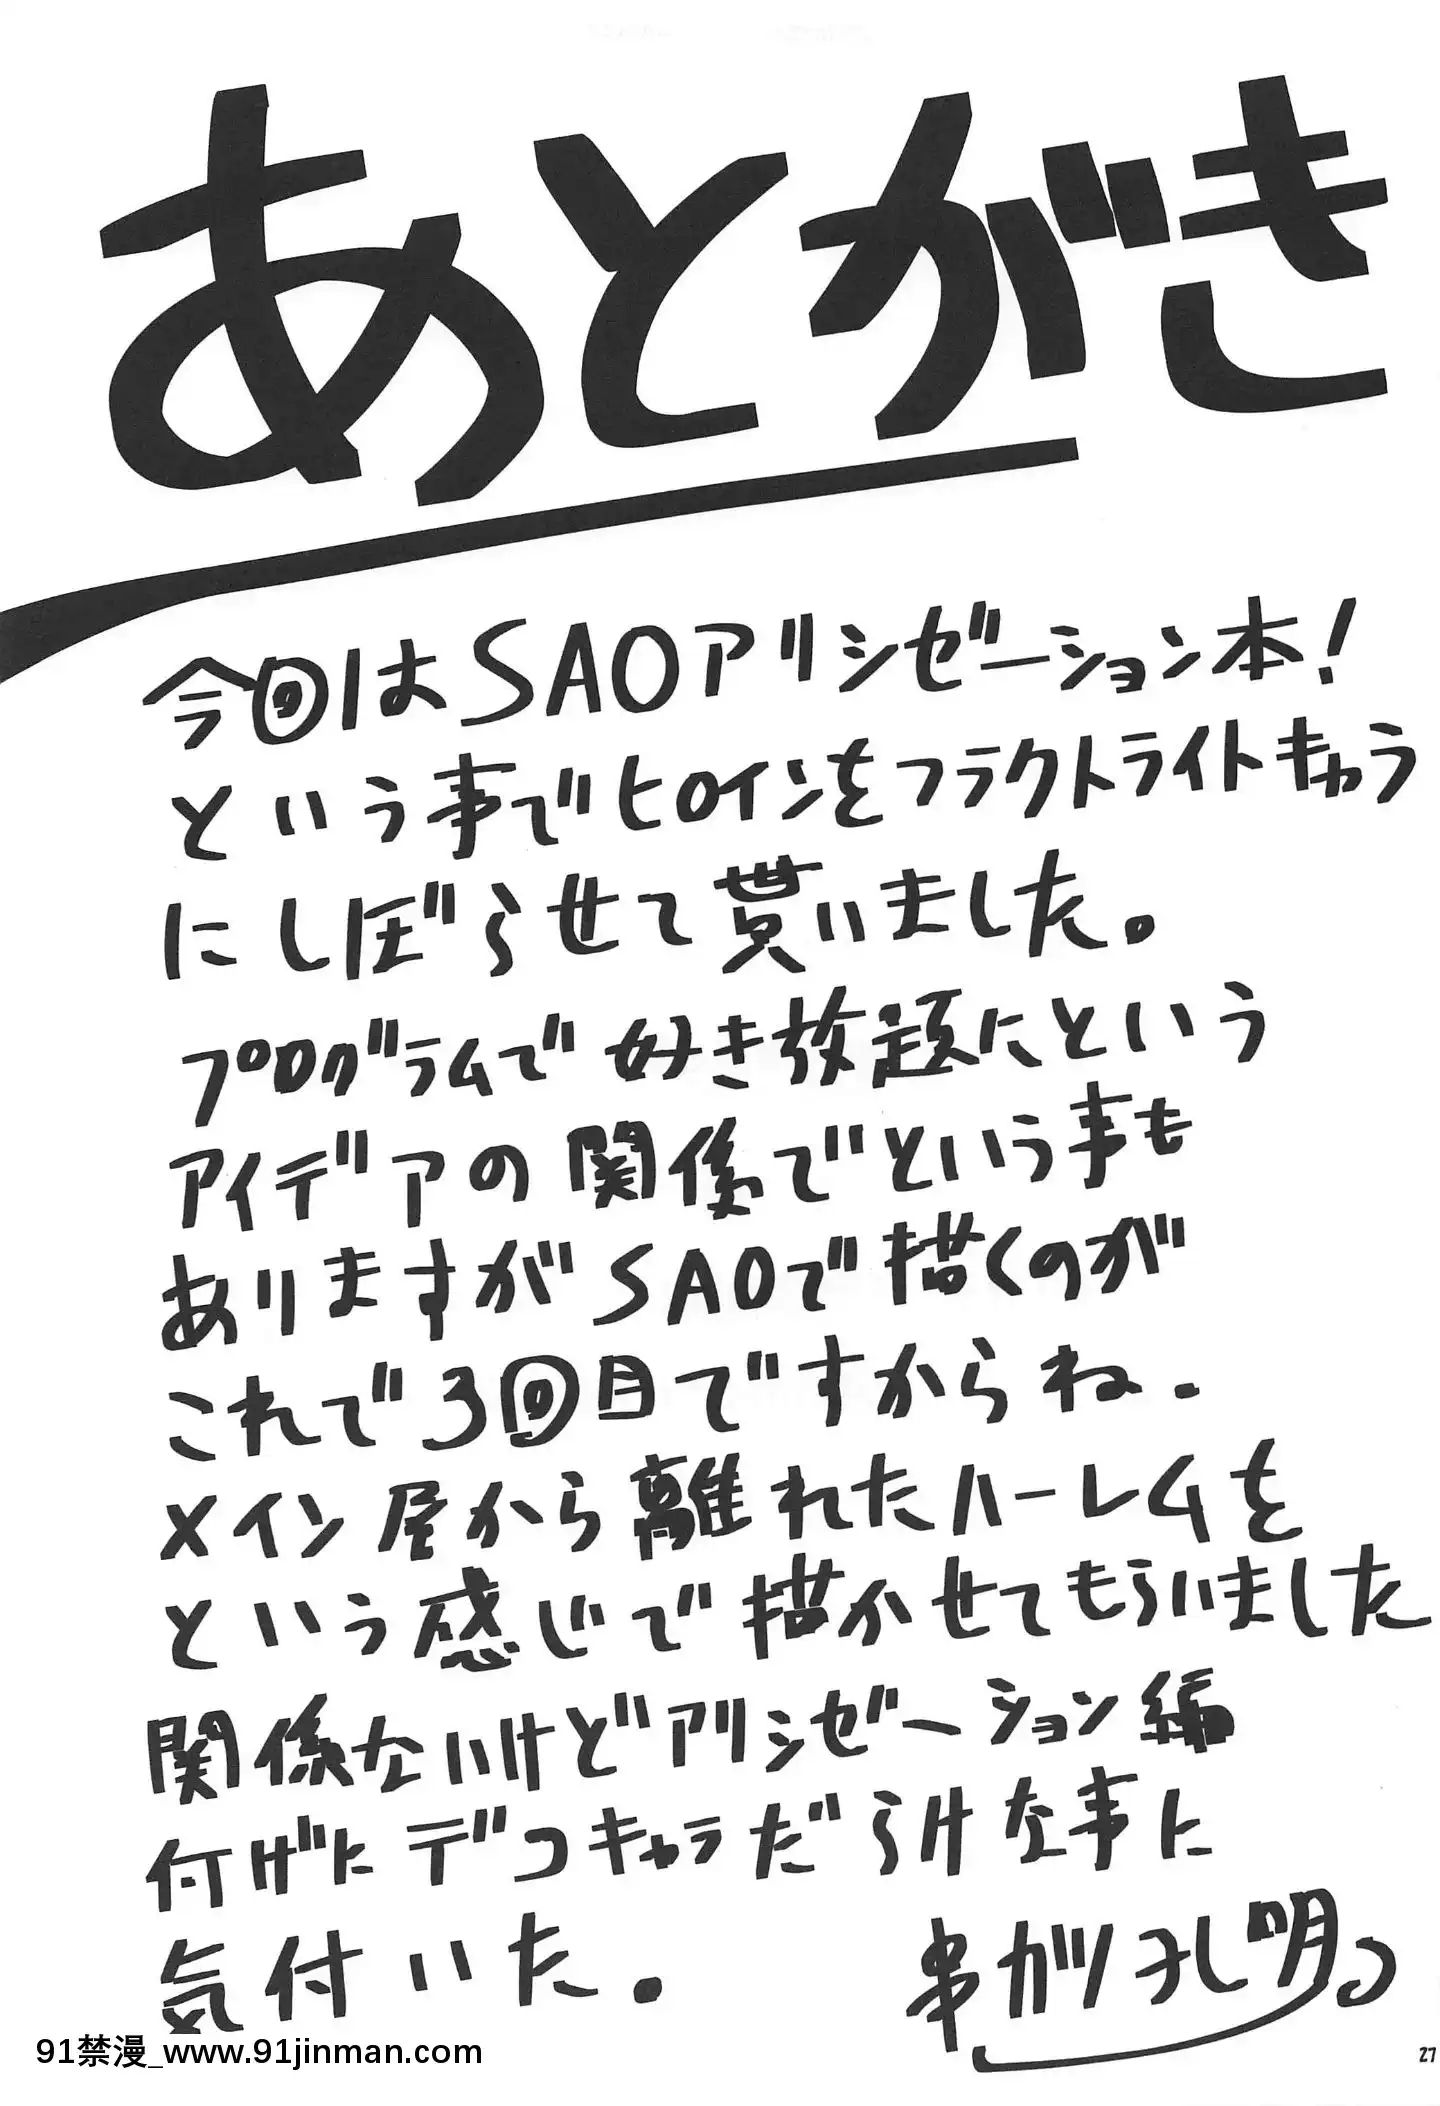 あとがき
今回はSAOアリシゼーション本!
という事でヒロインをフラクトライトキャラ
にしぼらせて貰いました。
プログラムで好き放題にという
アイデアの関係でという事も
ありますがSAOで描くのが
これで3回目ですからね.
メイン屋から離れたハーレムを
という感じで描かせてもらいました
関係ないけどアリシゼーション編
付けにデコキャラだらけな事に
気付いた.
串ガツ孔明。
91禁漫_www.91jinman.com
27